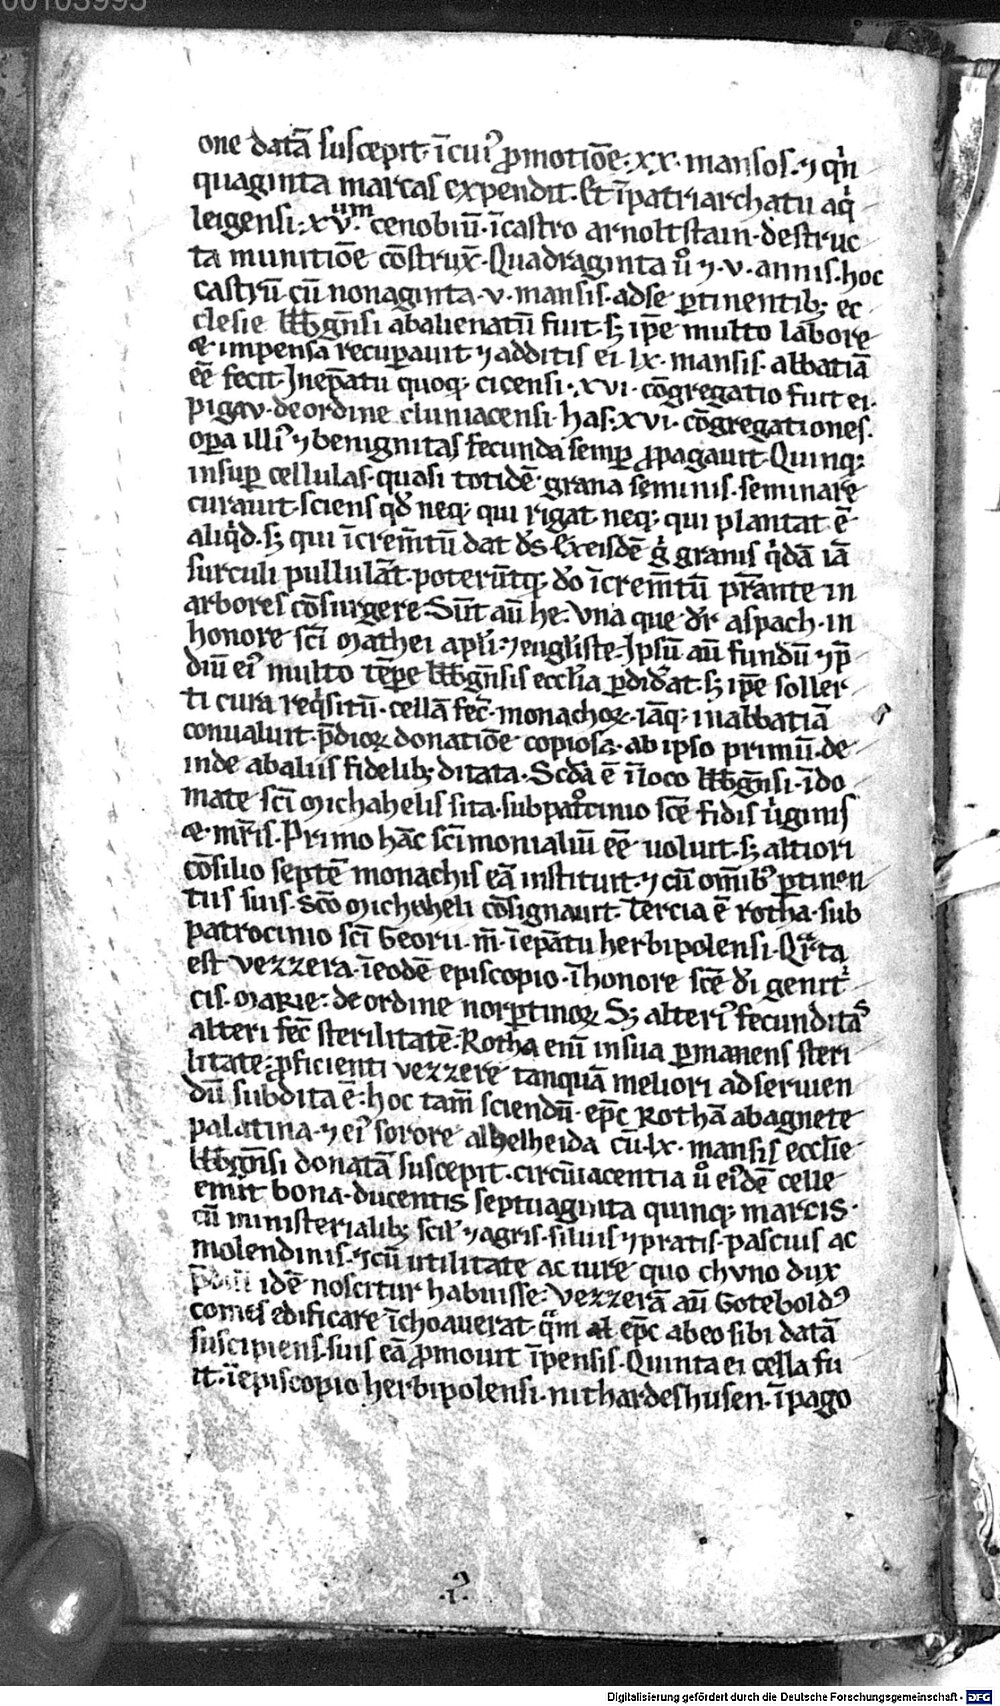 00103995
one datā suscepit· ī cui᷒ ꝓmotiōe· xx· mansos· ⁊ qͥn
quaginta marcas expendit· Et ī patriarchatu aqͥ
leigensi· xvᵘᵐ· cenobiū· ī castro arnoltstain· destruc
ta munitiōe cōstrux̄· Quadraginta u̾ ⁊ v· annis· hoc
castrū· cū nonaginta· v· mansis· ad se ꝑtinentib; ec
clesie bbgn̄si abalienatū fuit· sꝫ ip̄e multo labore
& impensa recuꝑauit· ⁊ additis ei· lx· mansis· abbatiā
eē fecit· In ep̄atu quoq; cicensi· xvi· cōgregatio fuit ei·
pigav· de ordine cluniacensi· has· xvi· cōgregationes·
oꝑa illi᷒ ⁊ benignitas fecunda semꝑ ꝓpagauit· Quinq;
insuꝑ cellulas· quasi totidē· grana seminis· seminare
curauit· sciens qd̄ neq; qui rigat· neq; qui plantat· ē
aliqͥd· sꝫ qui īcrem̄tū dat ds̄· Ex eisdē g̾ granis qͥdā iā
surculi pullulāt· poterūtq; do īcrem̄tū p̄stante in
arbores cōsurgere· Sūt aū he· Vna que dr̄ aspach· in
honore sc̄i Mathei apl̄i· ⁊ engl̄iste· Ipsū aū fundū ⁊ p̄
diū ei᷒ multo tēpe bbgn̄sis eccl̄ia ꝑdid̾at· sꝫ ip̄e soller
ti cura reqͥsitū· cellā fec̄· monachoꝝ· iāq; in abbatiā
conualuit· p̄dioꝝ donatiōe copiosa· ab ipso primū· de
inde ab aliis fidelib; ditata· Scd̄a ē ī loco bbgn̄si· ī do
mate sc̄i Michahelis sita· sub pat̊cinio sc̄e fidis uͥginis
& mr̄is· Primo hāc sc̄imonialiū eē uoluit· sꝫ altiori
cōsilio septē monachis eā instituit· ⁊ cū om̄ib᷒ ꝑtinen
tiis suis· sc̄o Michaheli cōsignauit· Tercia ē rotha· sub
patrocinio sc̄i Georii· m̄· ī ep̄atu herbipolensi· Qͣrta
est vezzera· ī eodē episcopio· ī honore sc̄e dī genitͥ
cis· MARIE· de ordine norꝑtinoꝝ Sꝫ alteri᷒ fecunditaˢ
alteri fec̄ sterilitatē· Rotha eni in sua ꝑmanens steri
litate· ꝓficienti vezzere tanquā meliori ad seruien
dū subdita ē· hoc tam̄ sciendū· ep̄c Rothā ab agnete
palatina· ⁊ ei᷒ sorore alhelheida cū· lx· mansis eccl̄ie
bbgn̄si donatā suscepit· circūiacentia u̾ ei᷒dē celle
emit bona· ducentis septuaginta quinq; marcis·
cū ministerialib; scil᷒ ⁊ agris· siluis ⁊ pratis· pascuis ac
molendinis· ⁊ cū utilitate ac iure quo chvno dux
p̄diū idē noscitur habuisse· Vezzerā aū Gotebold᷒
comes edificare īchoauerat· qͣm ep̄c ab eo sibi datā
suscipiens· suis eā ꝓmouit īpensis· Quinta ei cella fu
it· ī episcopio herbipolensi· nithardeshusen· ī pago
·i᷒·
Digitalisierung gefördert durch die Deutsche Forschungsgemeinschaft - DFG